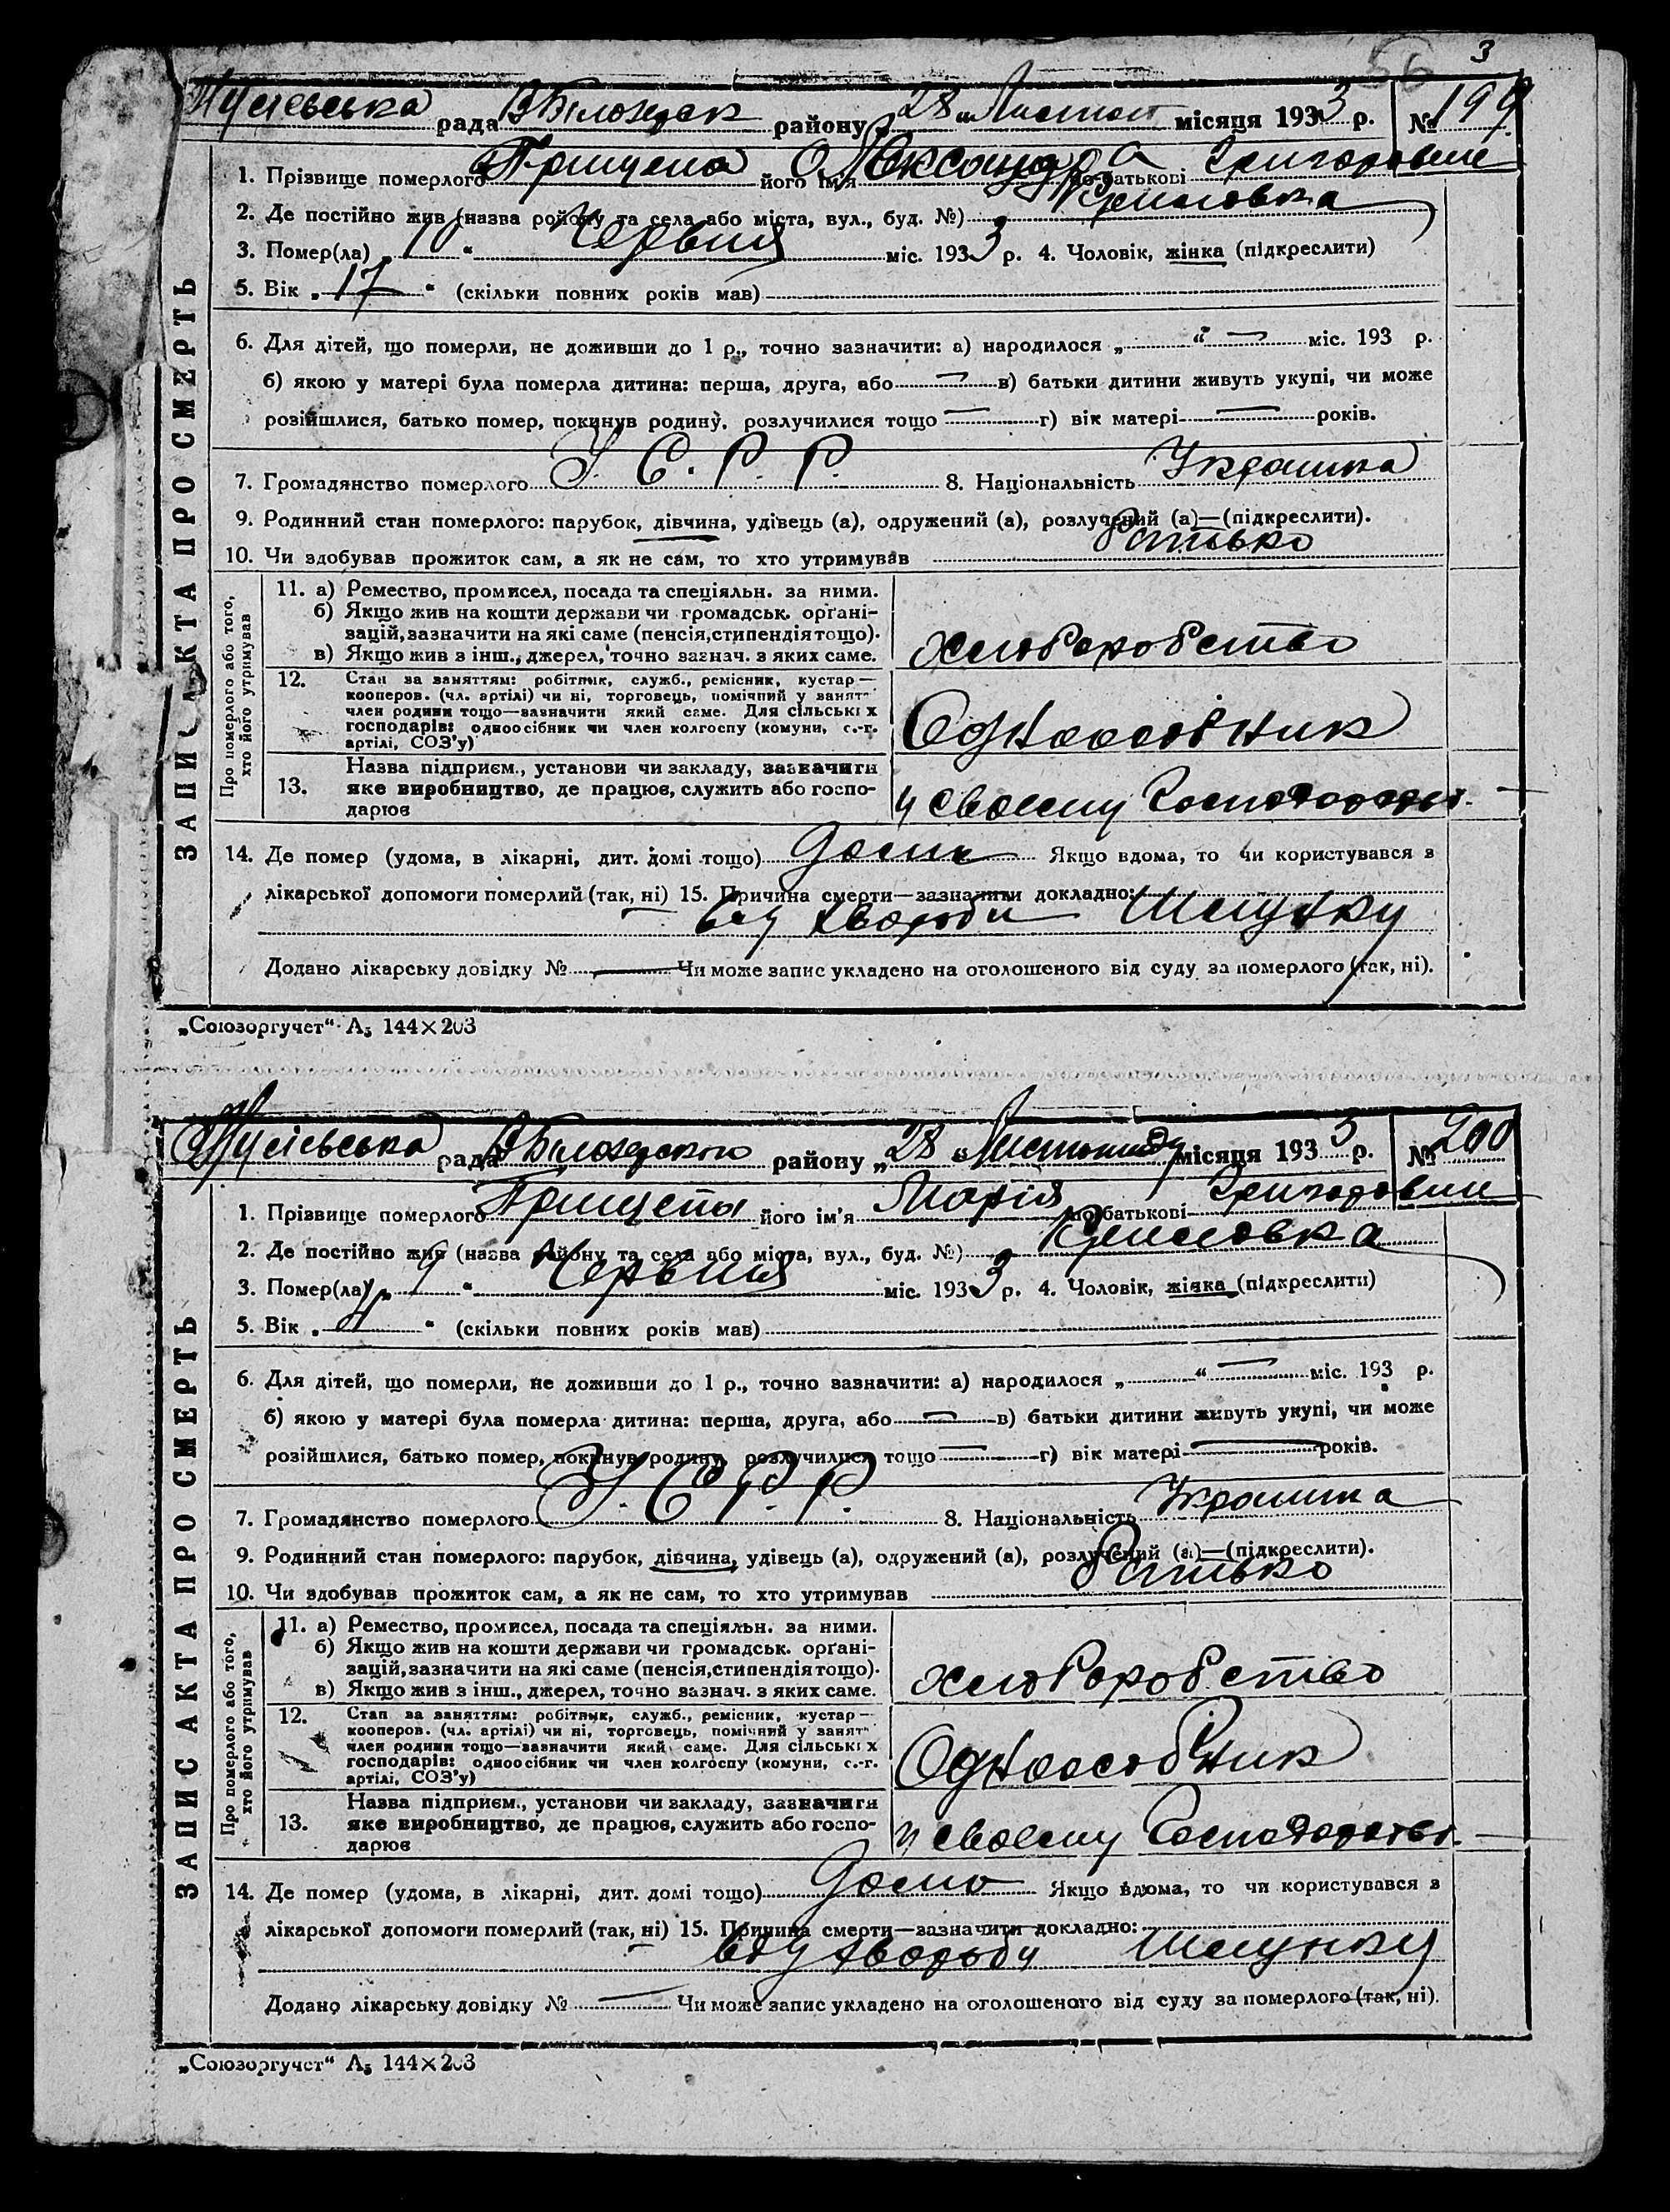 56 3
рада В Білозерк району „28“ Листоп місяця 1933 р. № 199
1. Прізвище померлого Прищепа його ім'я Олександра по батькові Григоровни
2. Де постійно жив (назва району та села або міста, вул., буд. №)
3. Помер(ла) „10“ Червня міс. 1933 р. 4. Чоловік, жінка (підкреслити)
5. Вік „17“ (скільки повних років мав)
6. Для дітей, що померли, не доживши до 1 р., точно зазначити: а) народилося „ “ — міс. 193 р.
б) якою у матері була померла дитина: перша, друга, або — в) батьки дитини живуть укупі, чи може
розійшлися, батько помер, покинув родину, розлучилися тощо — г) вік матері — років.
7. Громадянство померлого У. С. Р. Р. 8. Національність Українка
9. Родинний стан померлого: парубок, дівчина, удівець (а), одружений (а), розлучений (а)—(підкреслити).
10. Чи здобував прожиток сам, а як не сам, то хто утримував батько
ЗАПИС АКТА ПРО СМЕРТЬ
Про померлого або того, хто його утримував
11. а) Ремество, промисел, посада та спеціяльн. за ними.
б) Якщо жив на кошти держави чи громадськ. органі-
зацій, зазначити на які саме (пенсія, стипендія тощо).
в) Якщо жив з інш., джерел, точно зазнач. з яких саме.
хлюборобство
12. Стан за заняттям: робітник, служб., ремісник, кустар—
кооперов. (чл. артілі) чи ні, торговець, помічний у занят
член родини тощо—зазначити який саме. Для сільських
господарів: одноосібник чи член колгоспу (комуни, с.-г.
артілі, СОЗ'у)
Одноособник
13. Назва підприєм., установи чи закладу, зазначити
яке виробництво, де працює, служить або госпо-
дарює
у своему
14. Де помер (удома, в лікарні, дит. домі тощо) Якщо вдома, то чи користувався з
лікарської допомоги померлий (так, ні) 15. Причина смерти—зазначити докладно:
від хвороби шлунку
Додано лікарську довідку № — Чи може запис укладено на оголошеного від суду за померлого (так, ні).
„Союзоргучет“ А₅ 144×203
рада В Білозерского району „28“ Листопаду місяця 1933 р. № 200
1. Прізвище померлого Прищепы його ім'я Марія по батькові Григоровни
2. Де постійно жив (назва району та села або міста, вул., буд. №)
3. Помер(ла) „9“ Червня міс. 1933 р. 4. Чоловік, жінка (підкреслити)
5. Вік „ “ (скільки повних років мав)
6. Для дітей, що померли, не доживши до 1 р., точно зазначити: а) народилося „ “ — міс. 193 р.
б) якою у матері була померла дитина: перша, друга, або — в) батьки дитини живуть укупі, чи може
розійшлися, батько помер, покинув родину, розлучилися тощо — г) вік матері — років.
7. Громадянство померлого У. С. Р. Р. 8. Національність Українка
9. Родинний стан померлого: парубок, дівчина, удівець (а), одружений (а), розлучений (а)—(підкреслити).
10. Чи здобував прожиток сам, а як не сам, то хто утримував батько
ЗАПИС АКТА ПРО СМЕРТЬ
Про померлого або того, хто його утримував
11. а) Ремество, промисел, посада та спеціяльн. за ними.
б) Якщо жив на кошти держави чи громадськ. органі-
зацій, зазначити на які саме (пенсія, стипендія тощо).
в) Якщо жив з інш., джерел, точно зазнач. з яких саме.
хлюборобство
12. Стан за заняттям: робітник, служб., ремісник, кустар—
кооперов. (чл. артілі) чи ні, торговець, помічний у занят
член родини тощо—зазначити який саме. Для сільських
господарів: одноосібник чи член колгоспу (комуни, с.-г.
артілі, СОЗ'у)
Одноособник
13. Назва підприєм., установи чи закладу, зазначити
яке виробництво, де працює, служить або госпо-
дарює
у своему
14. Де помер (удома, в лікарні, дит. домі тощо) Якщо вдома, то чи користувався з
лікарської допомоги померлий (так, ні) 15. Причина смерти—зазначити докладно:
від хвороби шлунку
Додано лікарську довідку № — Чи може запис укладено на оголошеного від суду за померлого (так, ні).
„Союзоргучет“ А₅ 144×203